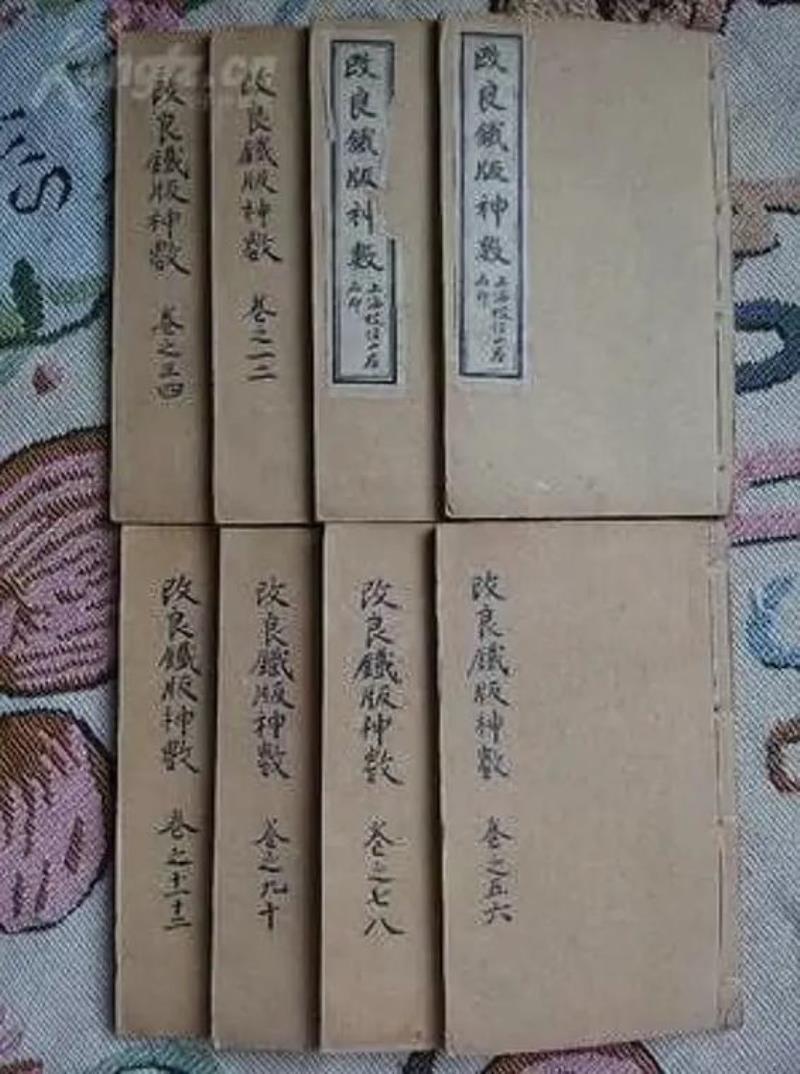 改良鐵版神數 上海校經山房石印
改良鐵版神數 上海校經山房石印
改良鐵版神數 卷之一二
改良鐵版神數 卷之三四
改良鐵版神數 卷之五六
改良鐵版神數 卷之七八
改良鐵版神數 卷之九十
改良鐵版神數 卷之十一十二